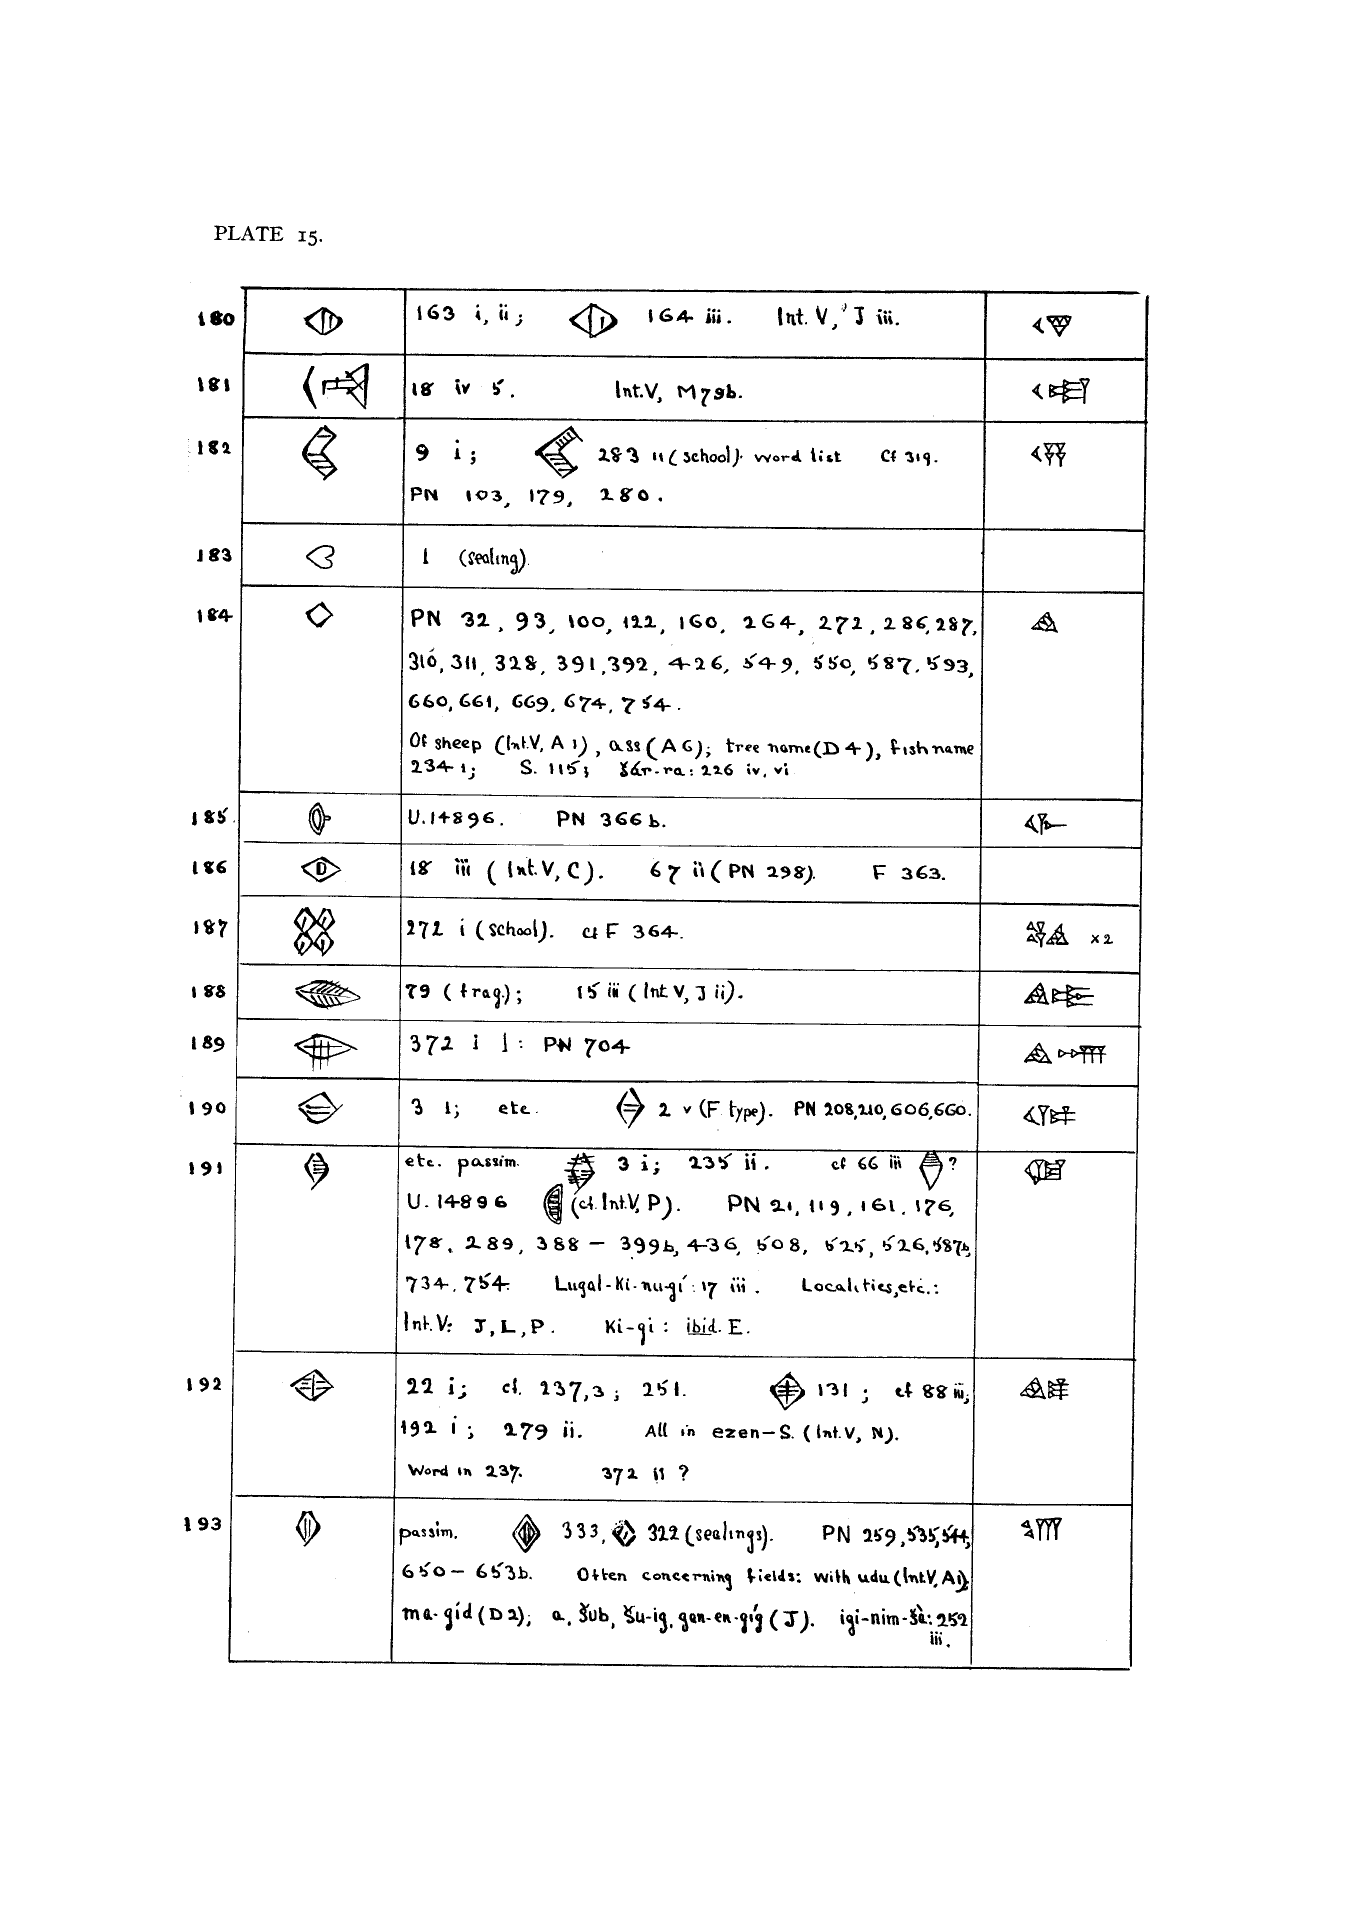 PLATE 15.
180 163 i, ii; 164 iii. Int. V, J iii.
181 18 iv 5. Int.V, M79b.
182 9 i; 283 ii (school): word list Cf 319.
PN 103, 179, 280.
183 1 (sealing).
184 PN 32, 93, 100, 122, 160, 264, 272, 286, 287,
310, 311, 328, 391, 392, 426, 549, 550, 587, 593,
660, 661, 669, 674, 754.
Of sheep (Int.V, A 1), ass (A 6); tree name (D 4), fish name
234 1; S. 115; šár-ra: 226 iv, vi
185. U.14896. PN 366b.
186 18 iii (Int.V, C). 67 ii (PN 298). F 363.
187 272 i (school). cf F 364. x2
188 79 (frag.); 15 iii (Int V, J ii).
189 372 i 1: PN 704
190 3 1; etc. 2 v (F type). PN 208, 210, 606, 660.
191 etc. passim. 3 i; 235 ii. cf 66 iii ?
U. 14896 (cf. Int.V, P). PN 21, 119, 161, 176,
178, 289, 388 – 399b, 436, 508, 525, 526, 587b,
734, 754. Lugal-ki-nu-gí: 17 iii. Localities, etc.:
Int.V: J, L, P. Ki-gi: ibid. E.
192 22 i; cf. 237,3; 251. 131; cf 88 iii;
192 i; 279 ii. All in ezen–S. (Int.V, N).
Word in 237. 372 ii ?
193 passim. 333, 322 (sealings). PN 259, 535, 544,
650 – 653b. Often concerning fields: with udu (Int.V, A1),
ma-gíd (D 2); a, šub, šu-ig, gan-en-gíg (J). igi-nim-šè: 252
iii.